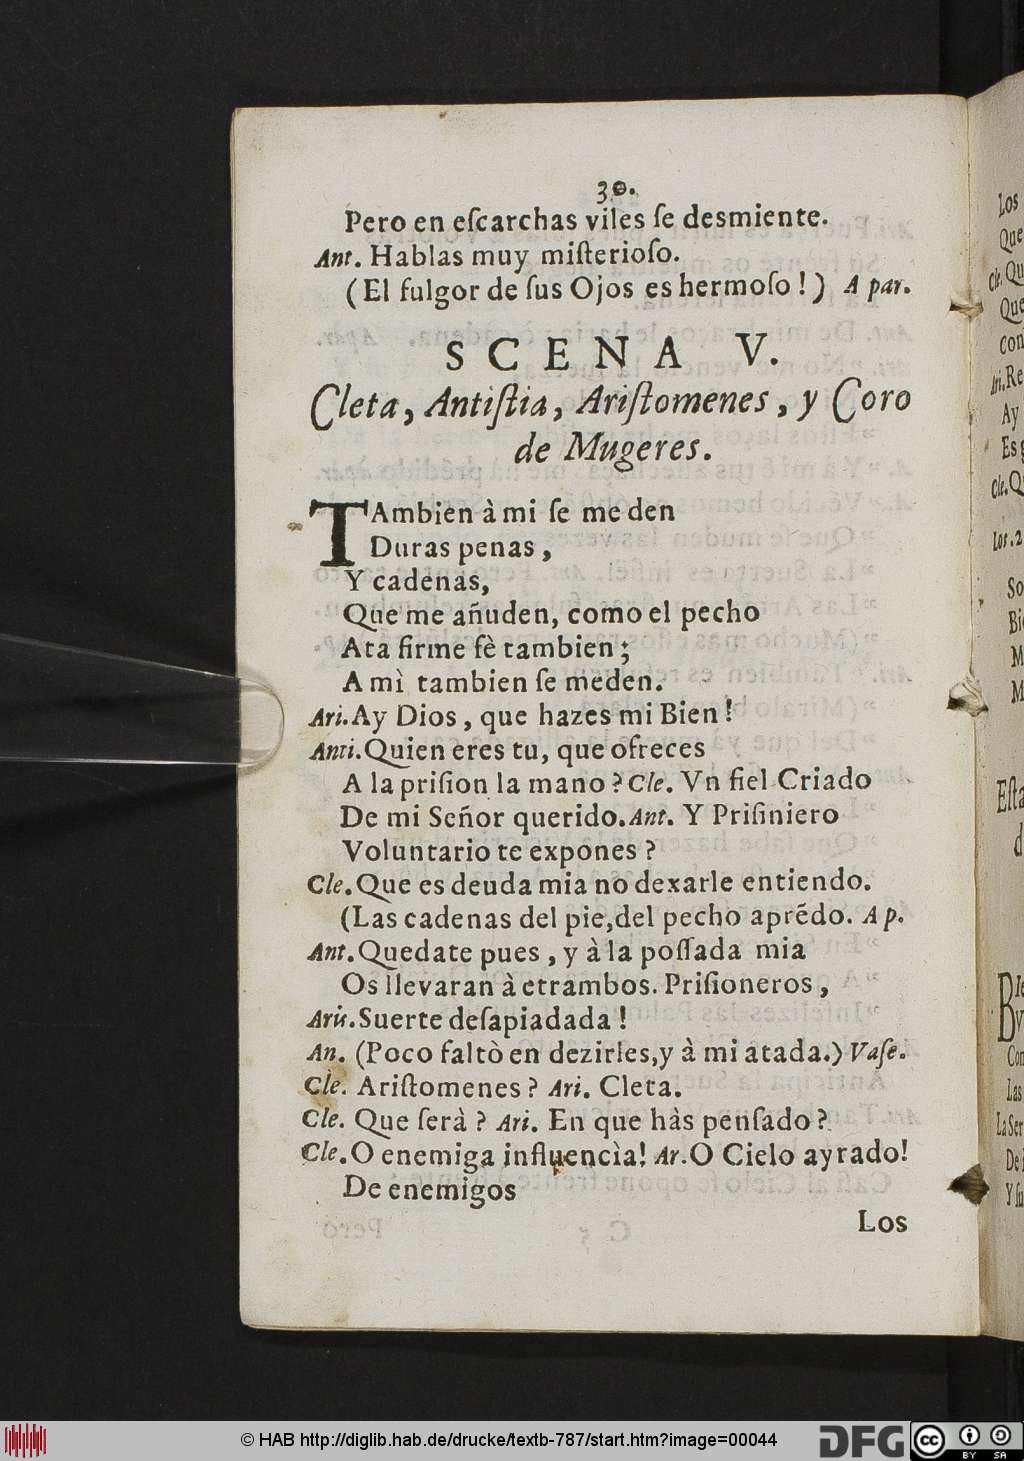 30.
Pero en eſcarchas viles ſe desmiente.
Ant. Hablas muy miſterioſo.
(El fulgor de ſus Ojos es hermoſo!) A par.
SCENA V.
Cleta, Antiſtia, Ariſtomenes, y Coro
de Mugeres.
TAmbien à mi ſe me den
Duras penas,
Y cadenas,
Que me añuden, como el pecho
Ata firme fè tambien;
A mì tambien ſe meden.
Ari. Ay Dios, que hazes mi Bien!
Anti. Quien eres tu, que ofreces
A la priſion la mano? Cle. Vn fiel Criado
De mi Señor querido. Ant. Y Priſiniero
Voluntario te expones?
Cle. Que es deuda mia no dexarle entiendo.
(Las cadenas del pie, del pecho aprẽdo. A p.
Ant. Quedate pues, y à la poſſada mia
Os llevaran à etrambos. Priſioneros,
Aris. Suerte deſapiadada!
An. (Poco faltò en dezirles, y à mi atada.) Vaſe.
Cle. Ariſtomenes? Ari. Cleta.
Cle. Que ſerà? Ari. En que hàs penſado?
Cle. O enemiga influencìa! Ar. O Cielo ayrado!
De enemigos
Los
Los
Que
Cle. Qu
Que
Con
Ari. Re
Ay
Es
Cle. Q
Los. 2
So
Bi
M
M
Eſta
d
Con
Las
La Ser
De
Y ſu
© HAB http://diglib.hab.de/drucke/textb-787/start.htm?image=00044
DFG
cc
BY SA